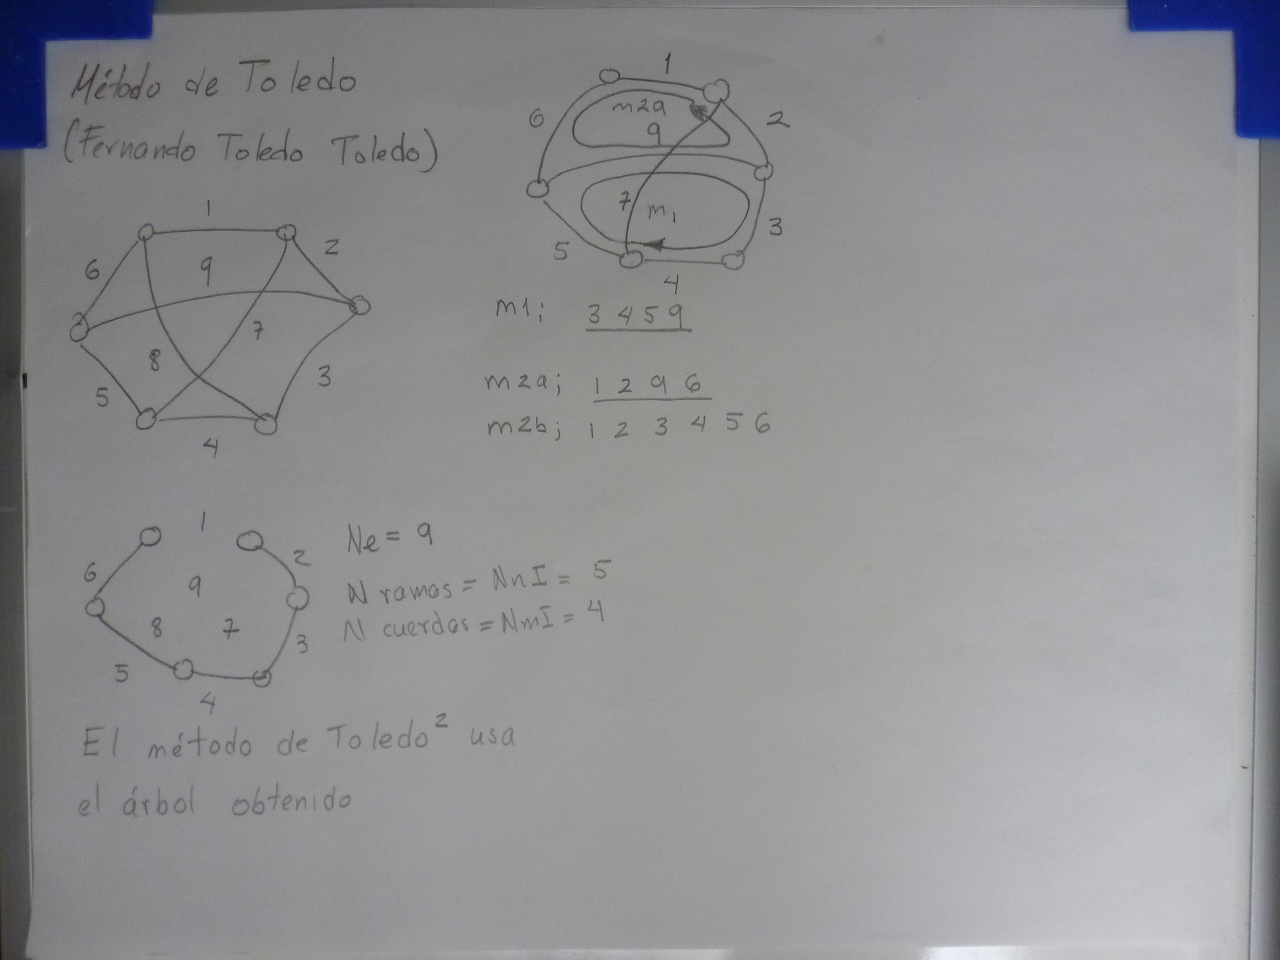 Método de Toledo
(Fernando Toledo Toledo)
1
6
9
2
7
8
5
3
4
1
6
m2a
9
2
7
m1
3
5
4
m1; 3 4 5 9
m2a; 1 2 9 6
m2b; 1 2 3 4 5 6
1
6
9
2
8
7
3
5
4
Ne = 9
N ramas = NnI = 5
N cuerdas = NmI = 4
El método de Toledo² usa
el árbol obtenido